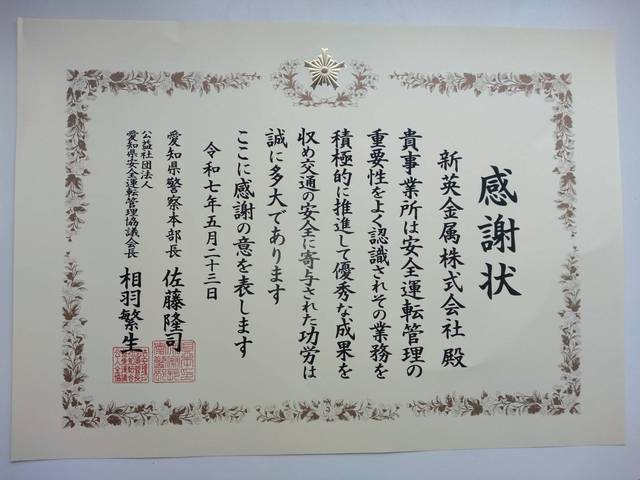 感謝状
新英金属株式会社 殿
貴事業所は安全運転管理の
重要性をよく認識されその業務を
積極的に推進して優秀な成果を
収め交通の安全に寄与された功労は
誠に多大であります
ここに感謝の意を表します
令和七年五月二十三日
愛知県警察本部長 佐藤隆司
公益社団法人
愛知県安全運転管理協議会長 相羽繁生